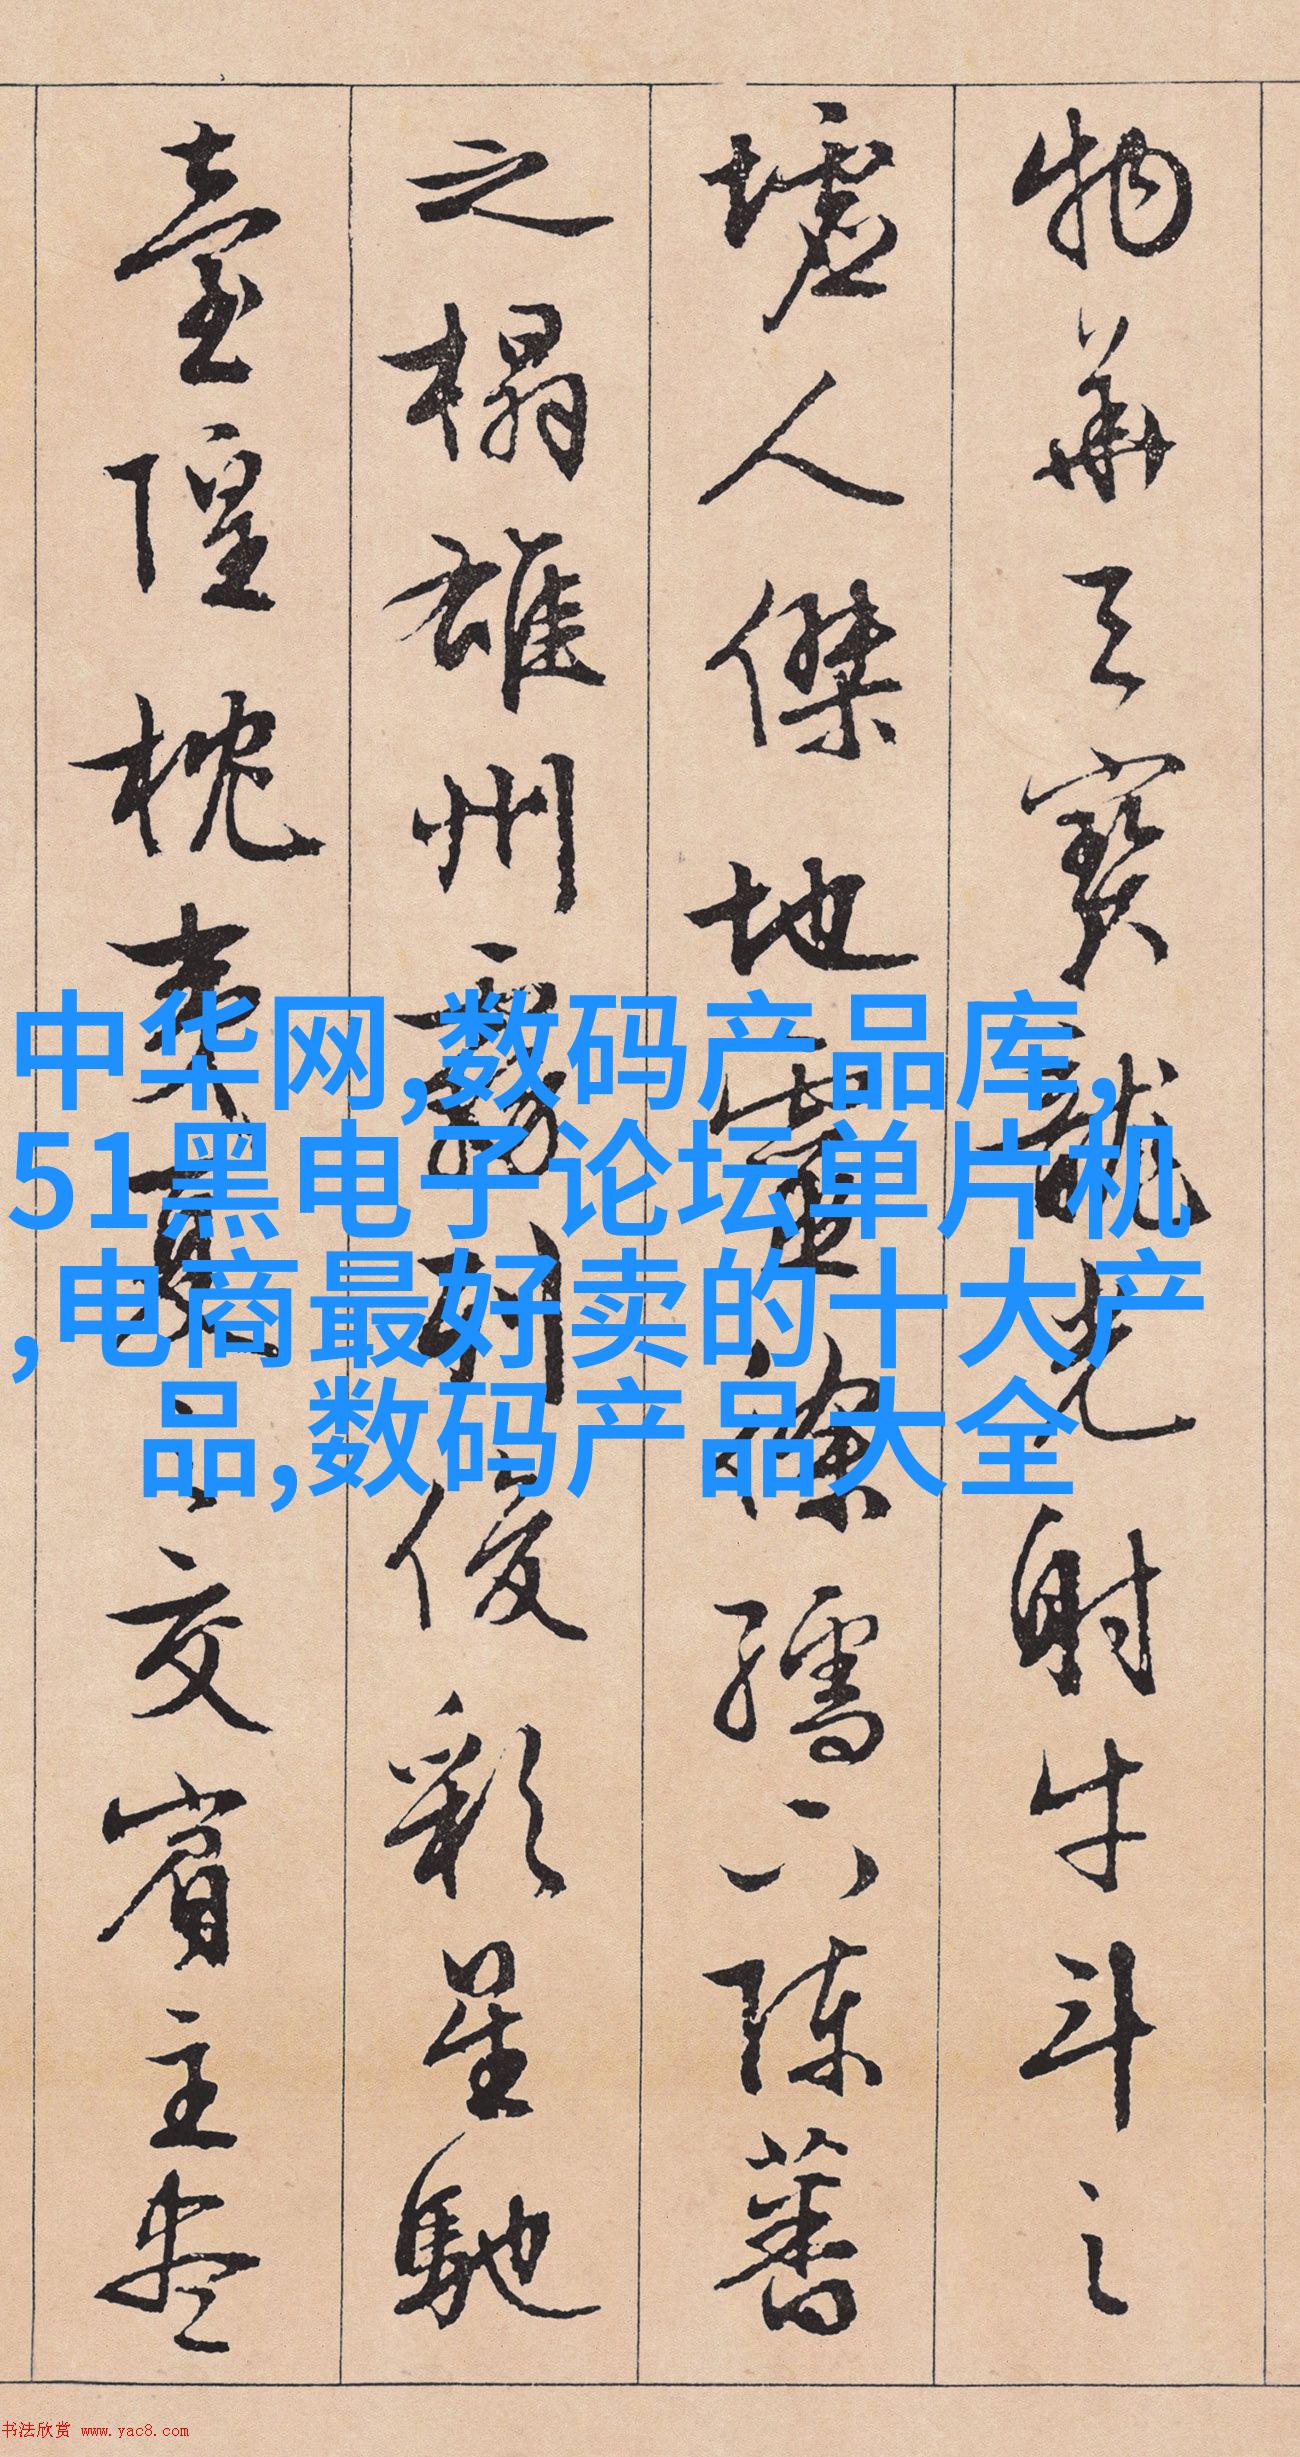 物華天寶龍光射牛斗之
墟人傑地靈徐孺下陳蕃
之榻雄州霧列俊彩星馳
臺隍枕夷夏之交賓主盡
中华网,数码产品库,
51黑电子论坛单片机
,电商最好卖的十大产
品,数码产品大全
书法欣赏 www.yac8.com